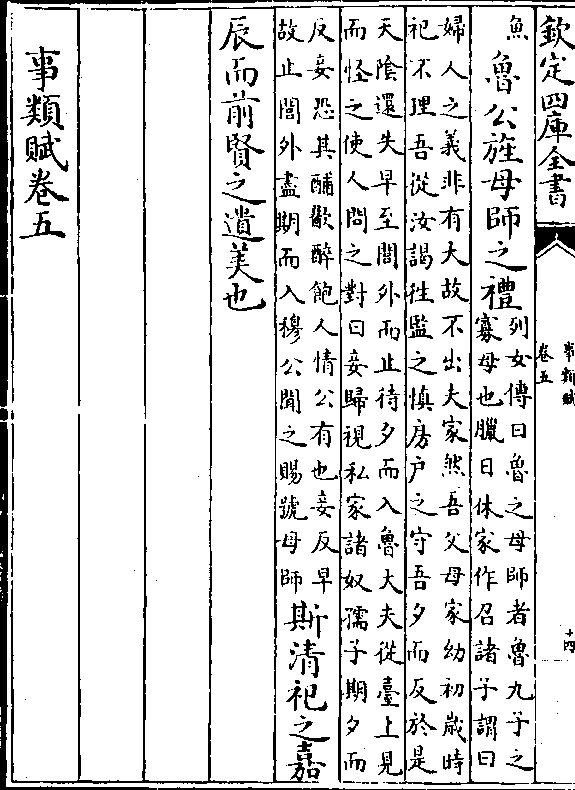 欽定四庫全書
事類賦
卷五
十四
魚
魯公旌母師之禮
列女傳曰魯之母師者魯九子之
寡母也臘日休家作召諸子謂曰
婦人之義非有大故不出夫家然吾父母家幼初歳時
祀不理吾從汝謁往監之慎房户之守吾夕而反於是
天陰還失早至閭外而止待夕而入魯大夫從臺上見
而怪之使人問之對曰妾歸視私家諸奴孺子期夕而
反妾恐其酺歡醉飽人情公有也妾反早
故止閭外盡期而入穆公聞之賜號母師
斯清祀之嘉
辰而前賢之遺美也
事類賦卷五